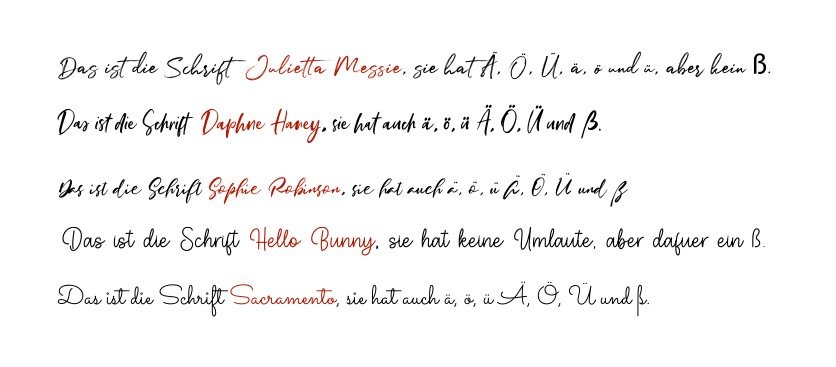 Das ist die Schrift Julietta Messie, sie hat Ä, Ö, Ü, ä, ö und ü, aber kein ß.
Das ist die Schrift Daphne Haney, sie hat auch ä, ö, ü Ä, Ö, Ü und ß.
Das ist die Schrift Sophie Robinson, sie hat auch ä, ö, ü Ä, Ö, Ü und ß
Das ist die Schrift Hello Bunny, sie hat keine Umlaute, aber dafuer ein ß.
Das ist die Schrift Sacramento, sie hat auch ä, ö, ü Ä, Ö, Ü und ß.